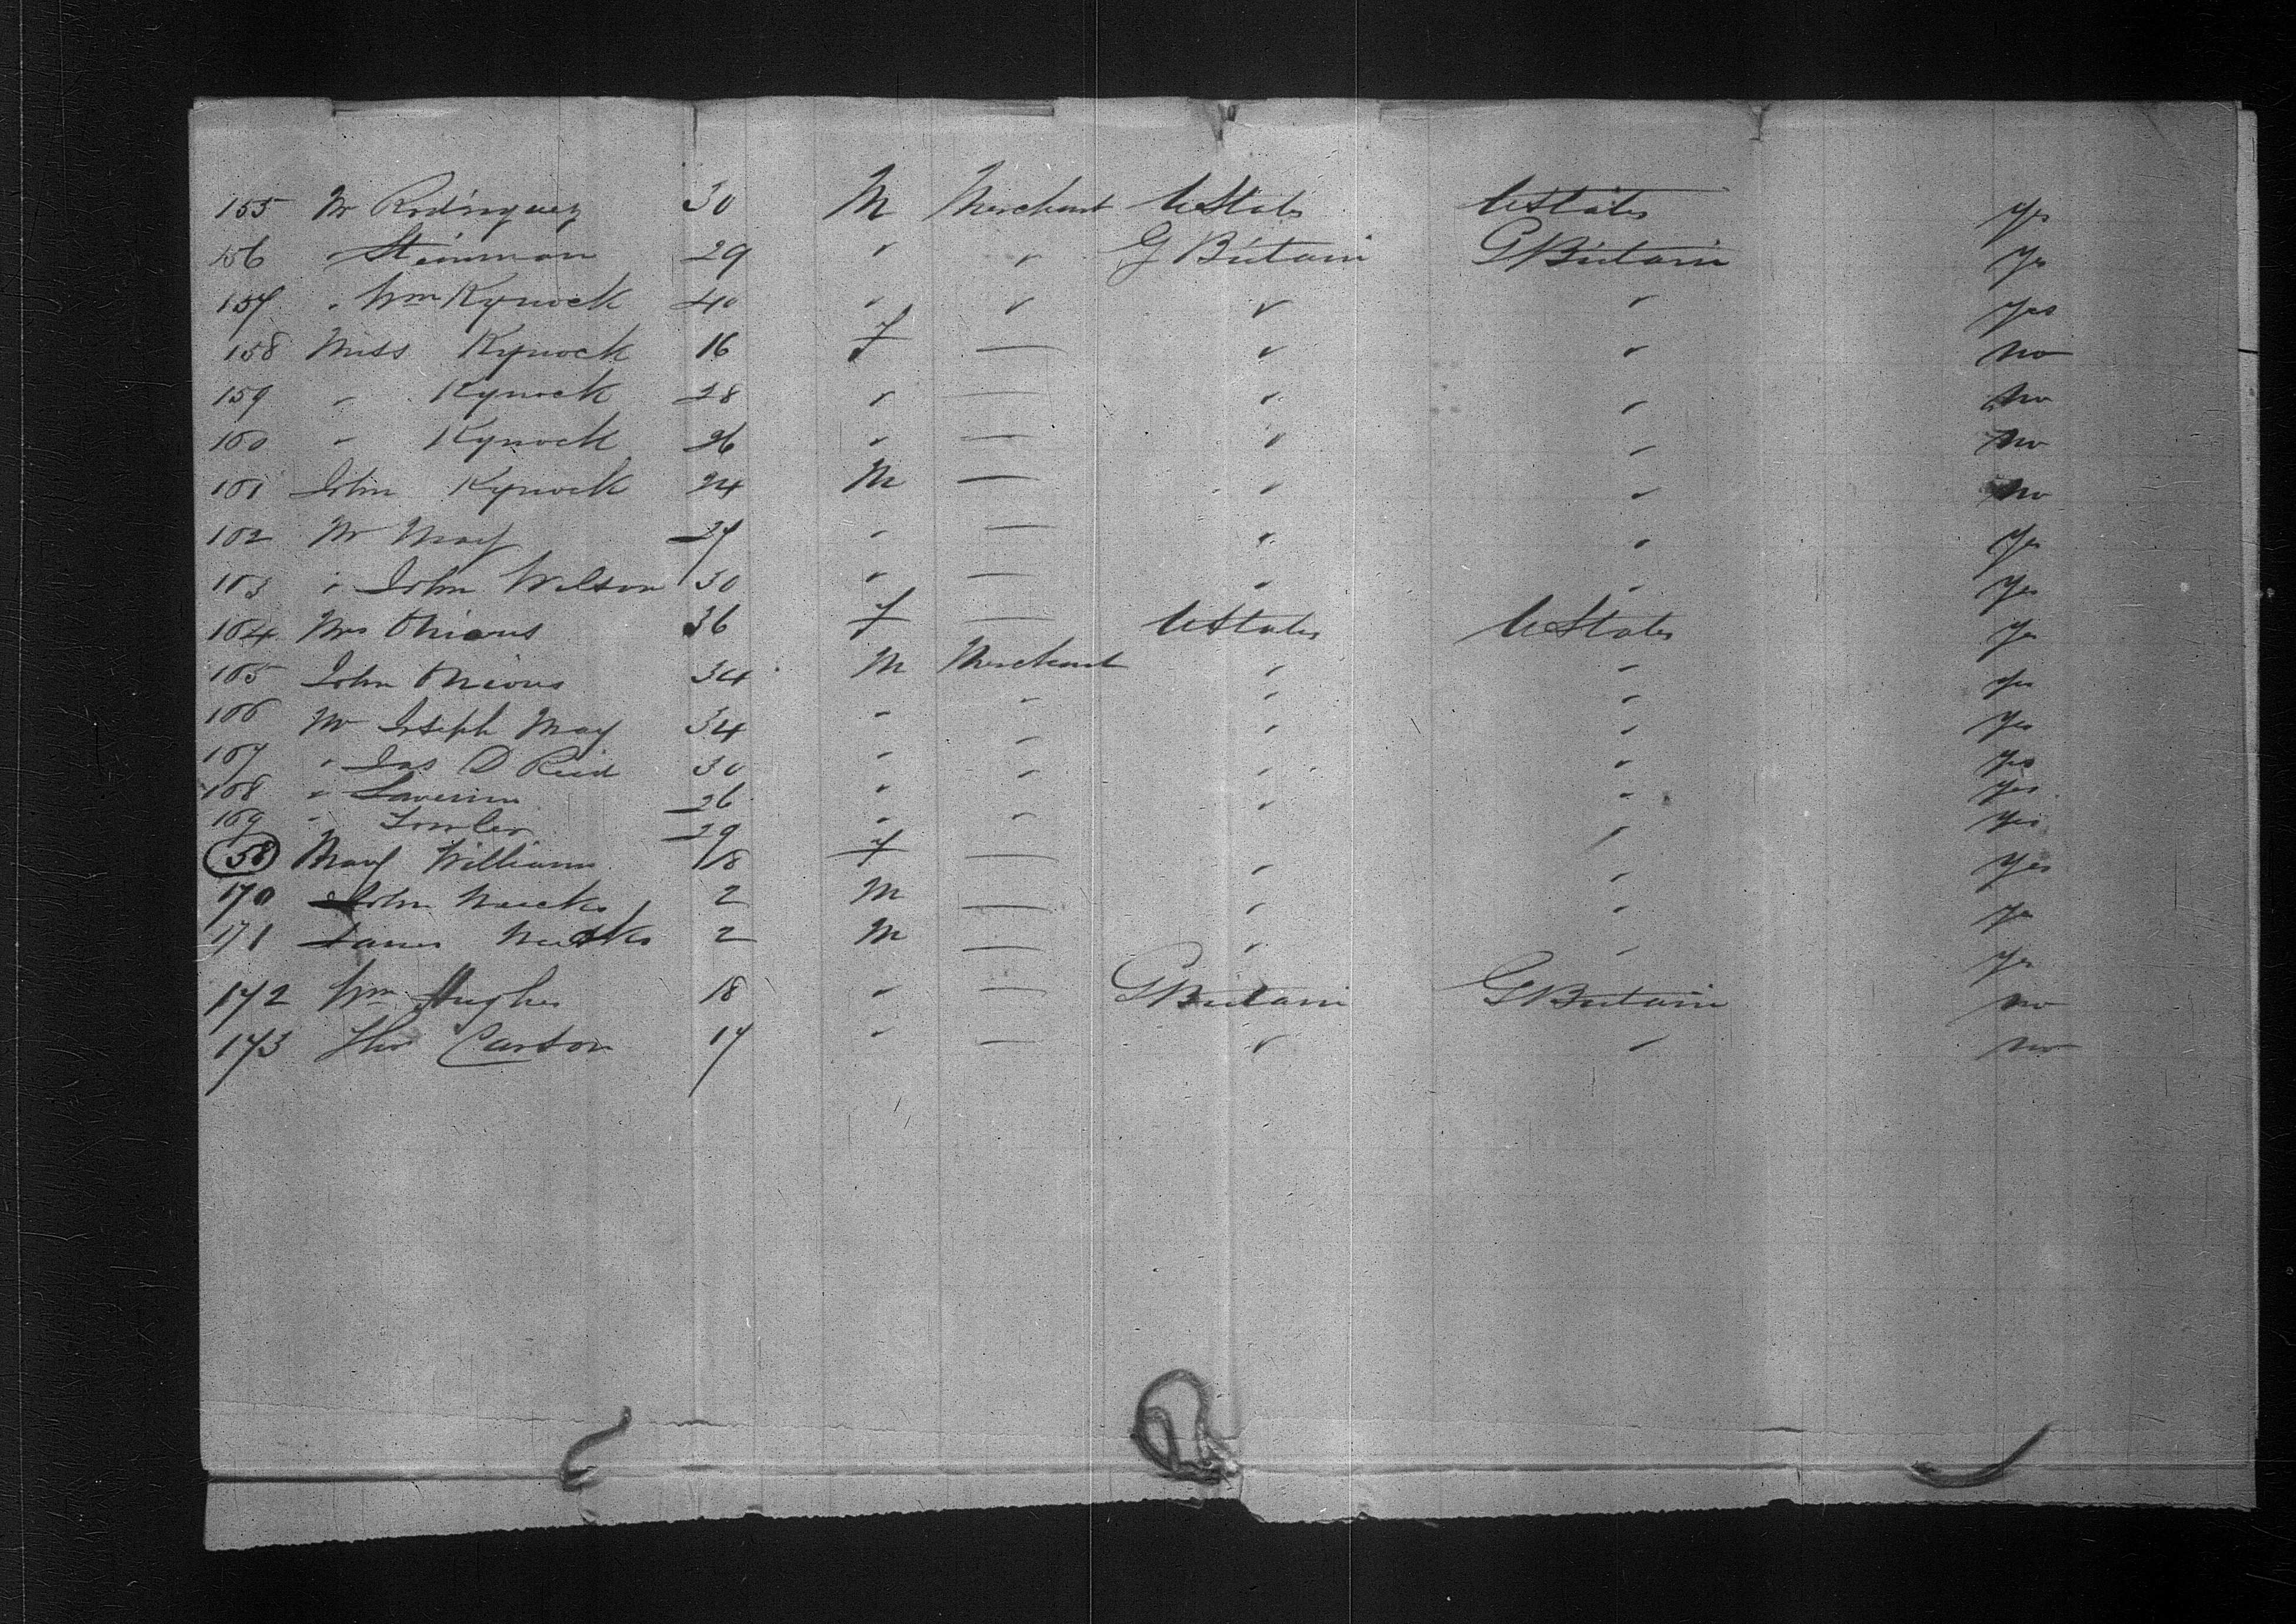 155 Mr Rodriguez 30 M Merchant UStates UStates yes
156 " Steinman 29 " " G Britain G Britain yes
157 " Wm Kynock 40 " " " " yes
158 Miss Kynock 16 f — " " no
159 " Kynock 28 " — " " no
160 " Kynock 26 " — " " no
161 John Kynock 24 M — " " no
162 Mr May 27 " — " " yes
163 " John Wilson 30 " — " " yes
164 Mrs 36 f — UStates UStates yes
165 John 34 M Merchant " " yes
166 Mr Joseph May 34 " " " " yes
167 " Jas D Reid 30 " " " " yes
168 " 26 " " " " yes
169 " Fowler 29 " " " " yes
58 Mary Williams 18 f — " " yes
170 John 2 M — " " yes
171 James 2 M — " " yes
172 Wm Hughes 18 " — G Britain G Britain no
173 Thos Carson 17 " — " " no